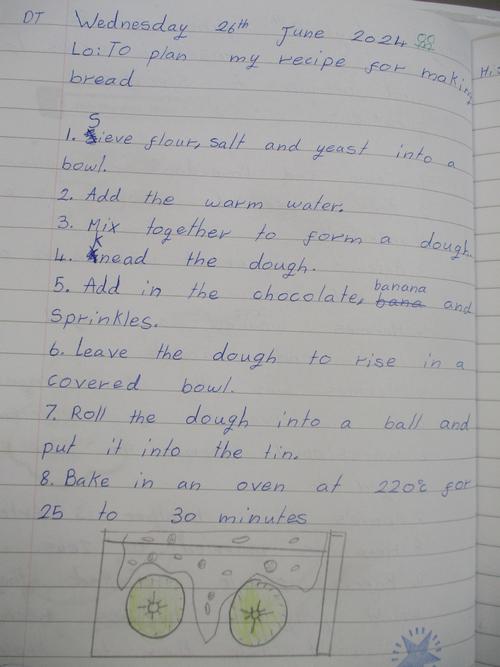 DT Wednesday 26th June 2024
Lo: To plan my recipe for making
bread
1. Sieve flour, salt and yeast into a
bowl.
2. Add the warm water.
3. Mix together to form a dough.
4. Knead the dough.
5. Add in the chocolate, banana and
sprinkles.
6. Leave the dough to rise in a
covered bowl.
7. Roll the dough into a ball and
put it into the tin.
8. Bake in an oven at 220°c for
25 to 30 minutes